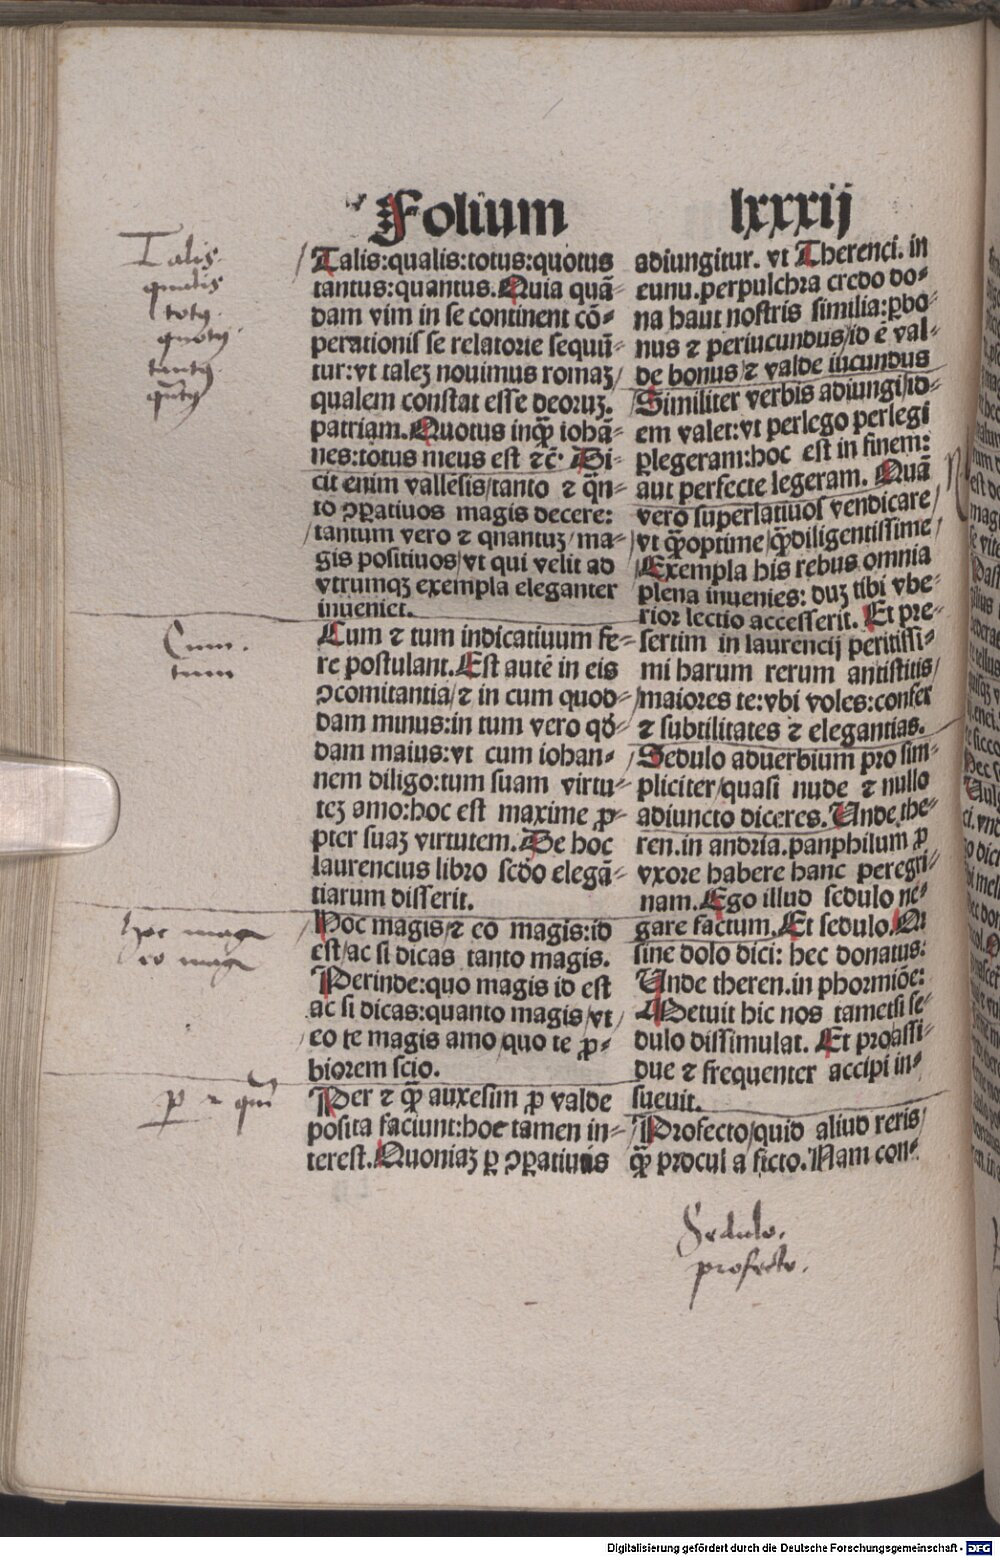 Folium lxxxij
Talis:qualis:totus:quotus
tantus:quantus.Quia quā-
dam vim in se continent cō-
perationis se relatorie sequū-
tur:vt taleʒ nouimus romaʒ/
qualem constat esse deoruʒ.
patriam.Quotus inqꝫ iohā-
nes:totus meus est ⁊c̄. Di-
cit enim vallesis/tanto ⁊ q̄n-
to ↄꝑatiuos magis decere:
tantum vero ⁊ qnantuʒ/ma-
gis positiuos/vt qui velit ad
vtrumqꝫ exempla eleganter
inueniet.
Cum ⁊ tum indicatiuum fe-
re postulant.Est autē in eis
ↄcomitantia/⁊ in cum quod-
dam minus:in tum vero qd̄-
dam maius:vt cum iohan-
nem diligo:tum suam virtu-
teʒ amo:hoc est maxime ꝓ-
pter suaʒ virtutem.De hoc
laurencius libro scd̄o elegā-
tiarum disserit.
Hoc magis/⁊ eo magis:id
est/ac si dicas tanto magis.
Perinde:quo magis id est
ac si dicas:quanto magis/vt
eo te magis amo/quo te ꝓ-
biorem scio.
Per ⁊ q̄ꝫ auxesim ꝓ valde
posita faciunt:hoc tamen in-
terest.Quoniaʒ ꝑ ↄꝑatiuis
adiungitur. vt Therenci. in
eunu.perpulchra credo do-
na haut nostris similia:ꝑbo-
nus ⁊ periucundus/id ē val-
de bonus/⁊ valde iucundus
Similiter verbis adiungi/id-
em valet:vt perlego perlegi
ꝑlegeram:hoc est in finem:
aut perfecte legeram. Quā
vero superlatiuos vendicare/
vt q̄ꝫoptime/q̄ꝫdiligentissime/
Exempla his rebus omnia
plena inuenies: duʒ tibi vbe-
rior lectio accesserit. Et pre-
sertim in laurencij peritissi-
mi harum rerum antistitis/
maiores te:vbi voles:confer
⁊ subtilitates ⁊ elegantias.
Sedulo aduerbium pro sim-
pliciter/quasi nude ⁊ nullo
adiuncto diceres.Unde the-
ren.in andria.panphilum ꝓ
vxore habere hanc peregri-
nam.Ego illud sedulo ne-
gare factum.Et sedulo.A
sine dolo dici: hec donatus:
Unde theren.in phormiōe:
Metuit hic nos tametsi se-
dulo dissimulat. Et pro assi-
due ⁊ frequenter accipi in-
sueuit.
Profecto/quid aliud reris/
q̄ꝫ procul a ficto.Nam con-
Talis.
qualis
totꝰ.
quotꝰ.
tantꝰ.
q̄ntꝰ
Cum.
tum
hoc mag
eo mag
ꝑ ⁊ qm̄
Sedulo.
profecto.
Digitalisierung gefördert durch die Deutsche Forschungsgemeinschaft - DFG